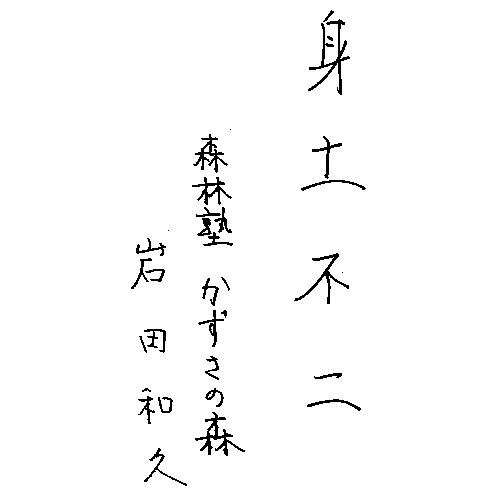 身土不二
森林塾 かずさの森
岩田和久